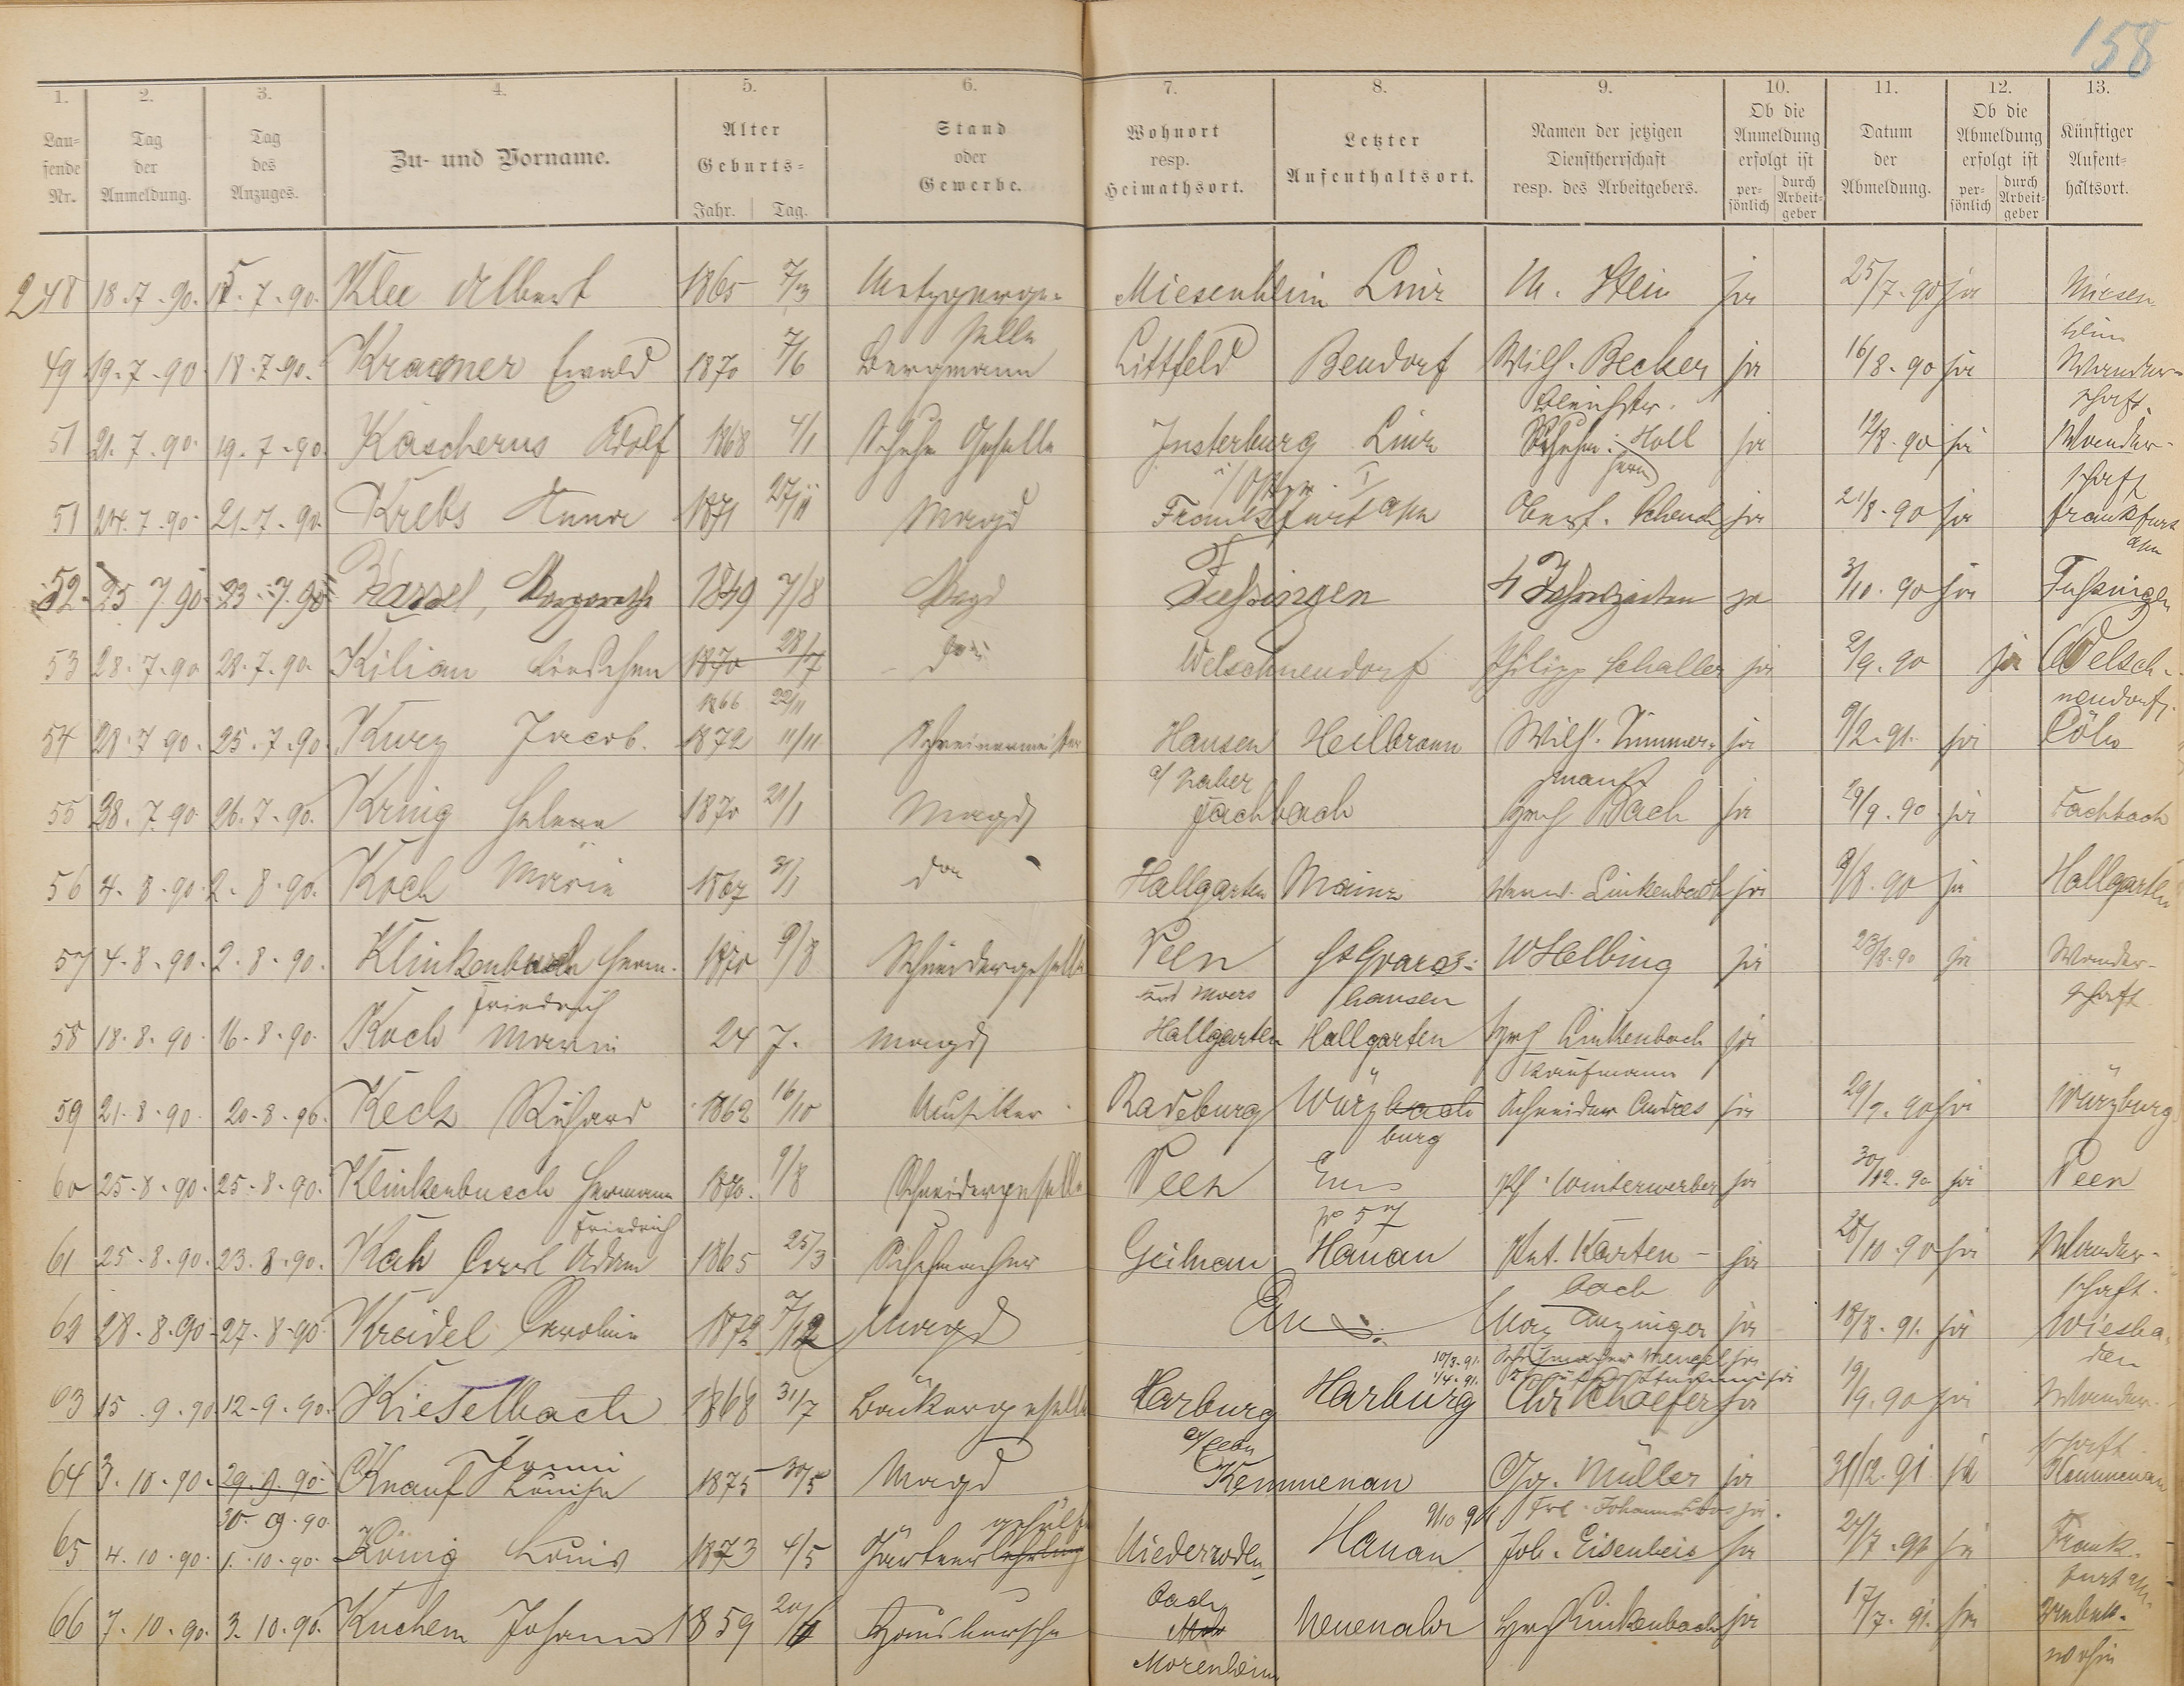 158
1. 2. 3. 4. 5. 6. 7. 8. 9. 10. 11. 12. 13.
Lau=fende Nr. Tag der Anmeldung. Tag des Anzuges. Zu- und Vorname. Alter Geburts= Jahr. Tag. Stand oder Gewerbe. Wohnort resp. Heimathsort. Letzter Aufenthaltsort. Namen der jetzigen Dienstherrschaft resp. des Arbeitgebers. Ob die Anmeldung erfolgt ist per=sönlich durch Arbeit=geber Datum der Abmeldung. Ob die Abmeldung erfolgt ist per=sönlich durch Arbeit=geber Künftiger Aufent=haltsort.
248 18.7.90. 15.7.90. Klee Albert 1865 7/3 Metzgerge=selle Miesenheim Linz M. Stein ja 25/7.90 ja Miesenheim
49 19.7.90 18.7.90. Kraemer Ewald 1870 7/6 Bergmann Littfeld Bendorf Wilh. Becker ja 16/8.90 ja Wanderschaft.
51 21.7.90. 19.7.90. Kascherus Adolf 1868 4/1 Schuh Geselle Insterburg Linz Holl ja 12/8.90 ja Wanderschaft
51 24.7.90. 21.7.90. Krebs Anna 1871 27/11 Magd Frankfurt a/m Schenck ja 21/8.90 ja Frankfurt a/m
52. 25 7 90. 23.7.90 Kassel, Margarethe 1849 7/8 Magd Fussingen 4 Jahreszeiten ja 3/10.90 ja Fussingen
53 28.7.90 28.7.90. Kilian Lieschen 1870 28/7 do Welschneudorf Philipp Schaller ja 2/9.90 ja Welschneudorf.
1866 22/11
54 28.7 90. 25.7.90. Kurz Jacob. 1872 11/11 Schreinermeister Hausen a/ Zaber Heilbronn Wilh. Zimmermann ja 9/2.91. ja Cöln
55 28.7.90 26.7.90. Krnig Helene 1870 21/1 Magd Fachbach Bach ja 29/9.90 ja Fachbach
56 4.8.90. 2.8.90. Koch Marie 1867 31/1 do Hallgarten Mainz Linkenbach ja 9/8.90 ja Hallgarten
57 4.8.90. 2.8.90. Klinkenbusch Herm. Friedrich 1870 9/8 Schneidergeselle Veen Moers St Goarshausen W Helbing ja 23/8.90 ja Wanderschaft
58 18.8.90. 16.8.90. Koch Marie 24 7. Magd Hallgarten Hallgarten Linkenbach ja
59 21.8.90. 20.8.90. Keck Richard 1862 16/10 Musiker Radeburg Würzbach burg Kaufmann Schneider Andres ja 29/9.90 ja Würzburg
60 25.8.90. 25.8.90. Klinkenbusch Hermann Friedrich 1870. 9/8 Schneidergeselle Veen Ems No 57 Ph. Winterwerber ja 30/12.90 ja Veen
61 25.8.90. 23.8.90. Kah Carl Adam 1865 25/3 Schuhmacher Geilnau Hanau Pet. Kartenbach ja 28/10.90 ja Wanderschaft.
62 28.8.90 27.8.90 Kreidel Caroline 1872 7/12 Magd Ems Max Anzinger ja 18/8.91. ja Wiesbaden
10/3.91. Schuhmacher Mengel ja
1/4.91.
63 15.9.90 12.9.90. Kieselbach 1868 31/7 Bäckergeselle Harburg a/Elbe Harburg Chr Schaefer ja 19/9.90 ja Wanderschaft
64 3.10.90. 29.9.90. 30.9.90. Knauf Louise 1875 30/5 Magd Kemmenau Müller ja 31/12.91 ja Kemmenau
65 4.10.90. 1.10.90. König Louis 1873 4/5 Gärtnerlehrling gehülfe Niederroden Hanau Joh. Eisenbeis ja 24/7.90 ja Frankfurt a/m
66 7.10.90. 3.10.90. Kuchem Johann 1859 Hausbursche Morenhoven Neuenahr Linkenbach ja 17/7.91. ja Unbekannt wohin